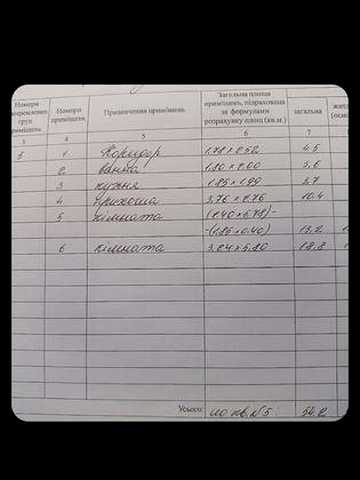 Номери
груп
приміщень
Номери
приміщень
Призначення приміщень
Загальна площа
приміщень, підрахована
за формулами
розрахунку площ (кв.м.)
загальна
3 4 5 6 7
5 1 Коридор 1.78×2.52 4.5
2 ванна 1.80×2.00 3.6
3 кухня 1.85×1.99 3.7
4 прихожа 3.76×2.76 10.4
5 кімната (2.40×5.78)-
-(1.85×0.40) 13.2
6 кімната 3.24×5.80 18.8
Усього: по кв. №5 54.2